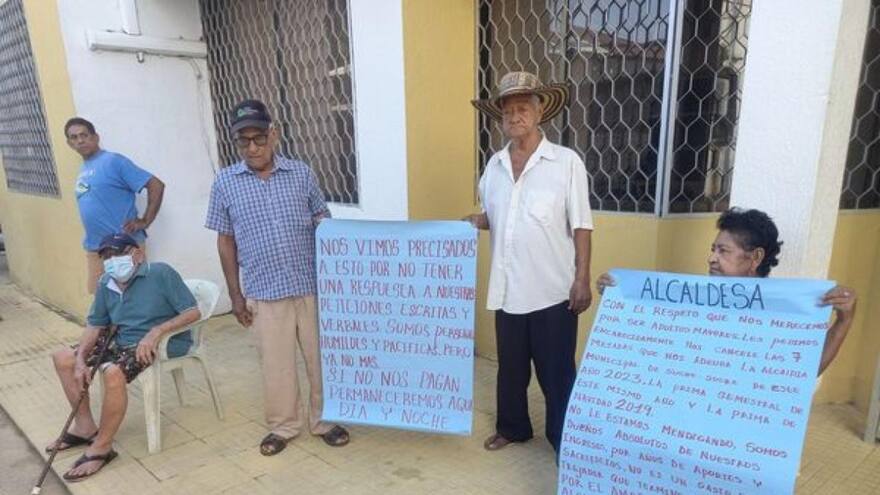 NOS VIMOS PRECISADOS
A ESTO POR NO TENER
UNA RESPUESTA A NUESTRAS
PETICIONES ESCRITAS Y
VERBALES. SOMOS PERSONAS
HUMILDES Y PACIFICAS, PERO
YA NO MAS.
SI NO NOS PAGAN
PERMANECEREMOS AQUI
DIA Y NOCHE
ALCALDESA
CON EL RESPETO QUE NOS MERECEMOS
POR SER ADULTOS MAYORES. LES PEDIMOS
ENCARECIDAMENTE NOS CANCELE LAS 7
MESADAS QUE NOS ADEUDA LA ALCALDIA
MUNICIPAL DE SUCRE SUCRE DE ESTE
AÑO 2023. LA PRIMA SEMESTRAL DE
ESTE MISMO AÑO Y LA PRIMA DE
NAVIDAD 2019.
NO LE ESTAMOS MENDIGANDO, SOMOS
DUEÑOS ABSOLUTOS DE NUESTROS
INGRESOS, POR AÑOS DE APORTES Y
SACRIFICIOS, NO ES UN
QUE
POR EL